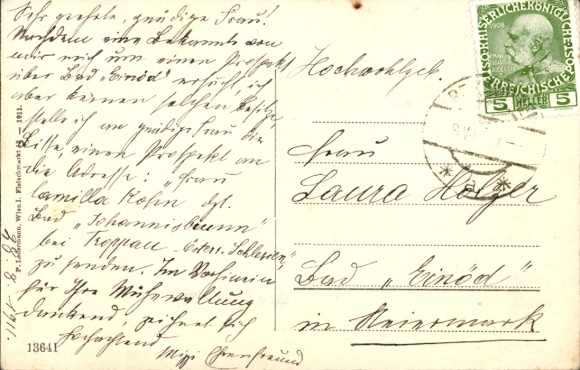 Sehr geehrte, gnädige Frau!
Nachdem eine Bekannte von
mir mich um einen Prospekt
über Bad „Einöd" ersucht, ich
aber keinen solchen besitze,
stelle ich an gnädige Frau die
Bitte, einen Prospekt an
die Adresse: „Frau
Camilla Kohn dzt.
Bad „Johannisbrunn"
bei Troppau - Österr. Schlesien"
zu senden. Im Vorhinein
für Ihre Mühewaltung
dankend, zeichnet sich
hochachtend
Mizzi Ehrenfreund
13641
P. Ledermann, Wien I. Fleischmarkt 1911.
8. 1911.
KAISERLICHE KÖNIGLICHE
1908
ÖSTERREICHISCHE
5 HELLER 5
Hochwohlgeb.
Frau
Laura Holzer
Bad „Einöd"
in Steiermark
* a *